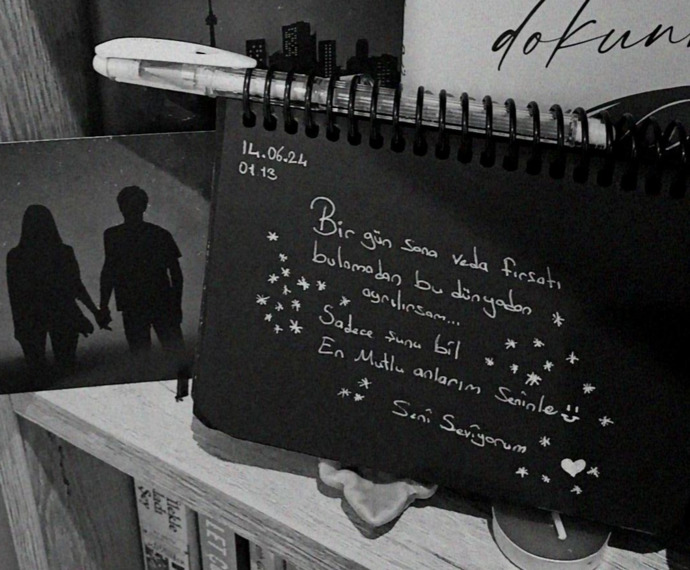 dokun
14.06.24
01 13
Bir gün sana veda fırsatı
bulamadan bu dünyadan
ayrılırsam...
Sadece şunu bil
En Mutlu anlarım Seninle
Seni Seviyorum